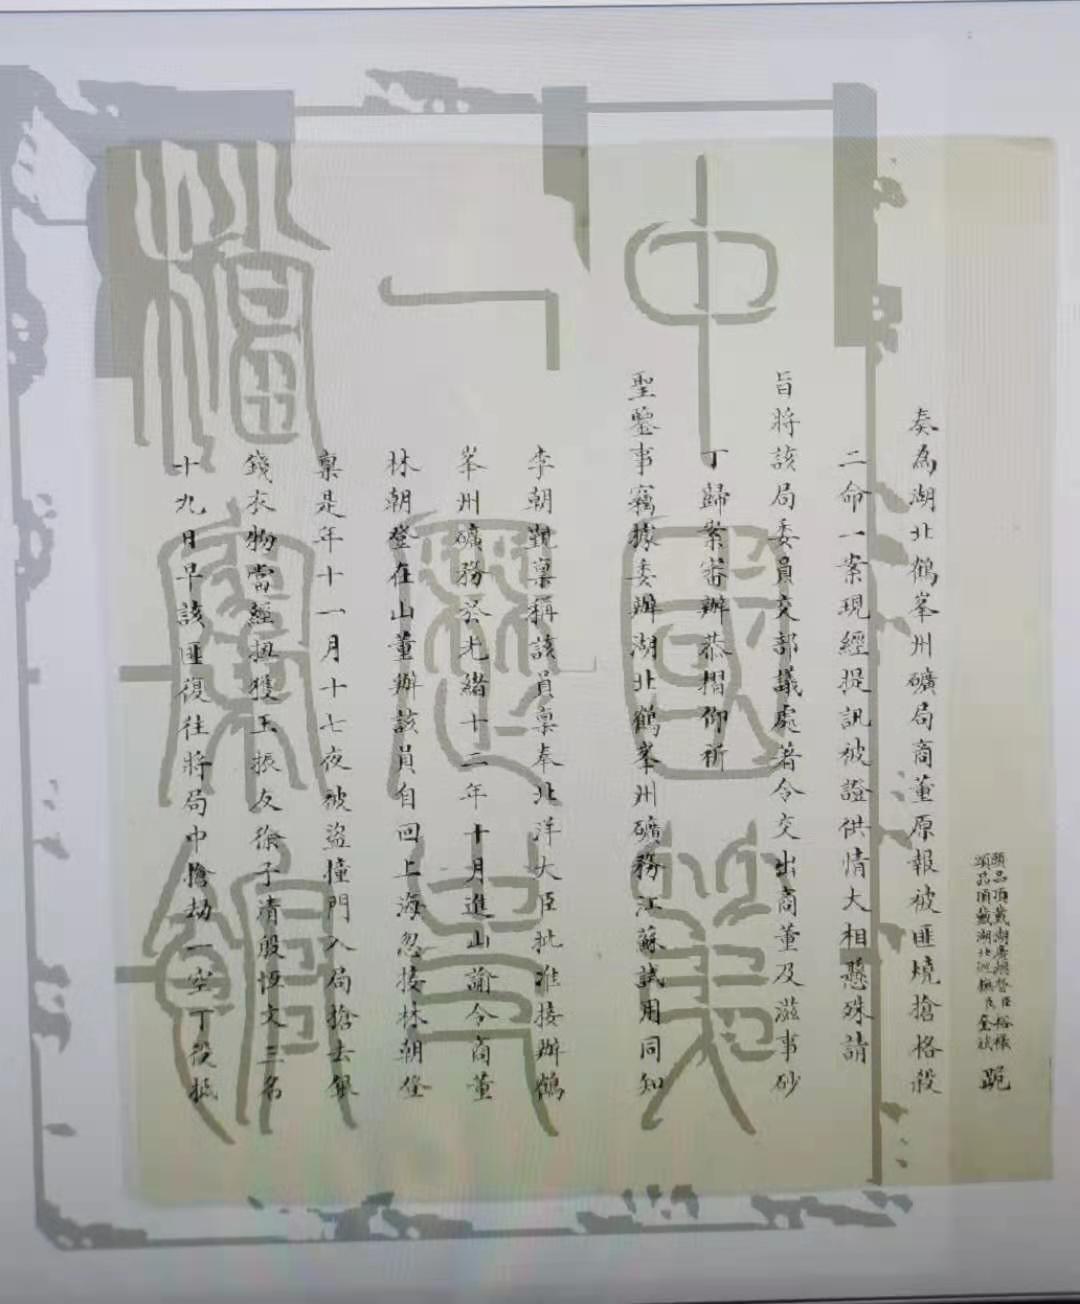 頭品頂戴湖廣總督臣裕祿
頭品頂戴湖北巡撫臣奎斌 跪
奏為湖北鶴峯州礦局商董原報被匪燒搶格殺
二命一案現經提訊被證供情大相懸殊請
旨將該局委員交部議處著令交出商董及滋事砂
丁歸案審辦恭摺仰祈
聖鑒事竊據委辦湖北鶴峯州礦務江蘇試用同知
李朝覲稟稱該員稟奉北洋大臣批准接辦鶴
峯州礦務於光緒十二年十月進山諭令商董
林朝登在山董辦該員自回上海忽接林朝登
稟是年十一月十七夜被盜撞門入局搶去銀
錢衣物當經扭獲王振友徐子清殷恆文三名
十九日早該匪復往將局中搶劫一空丁役抵
中國第一歷史檔案館藏